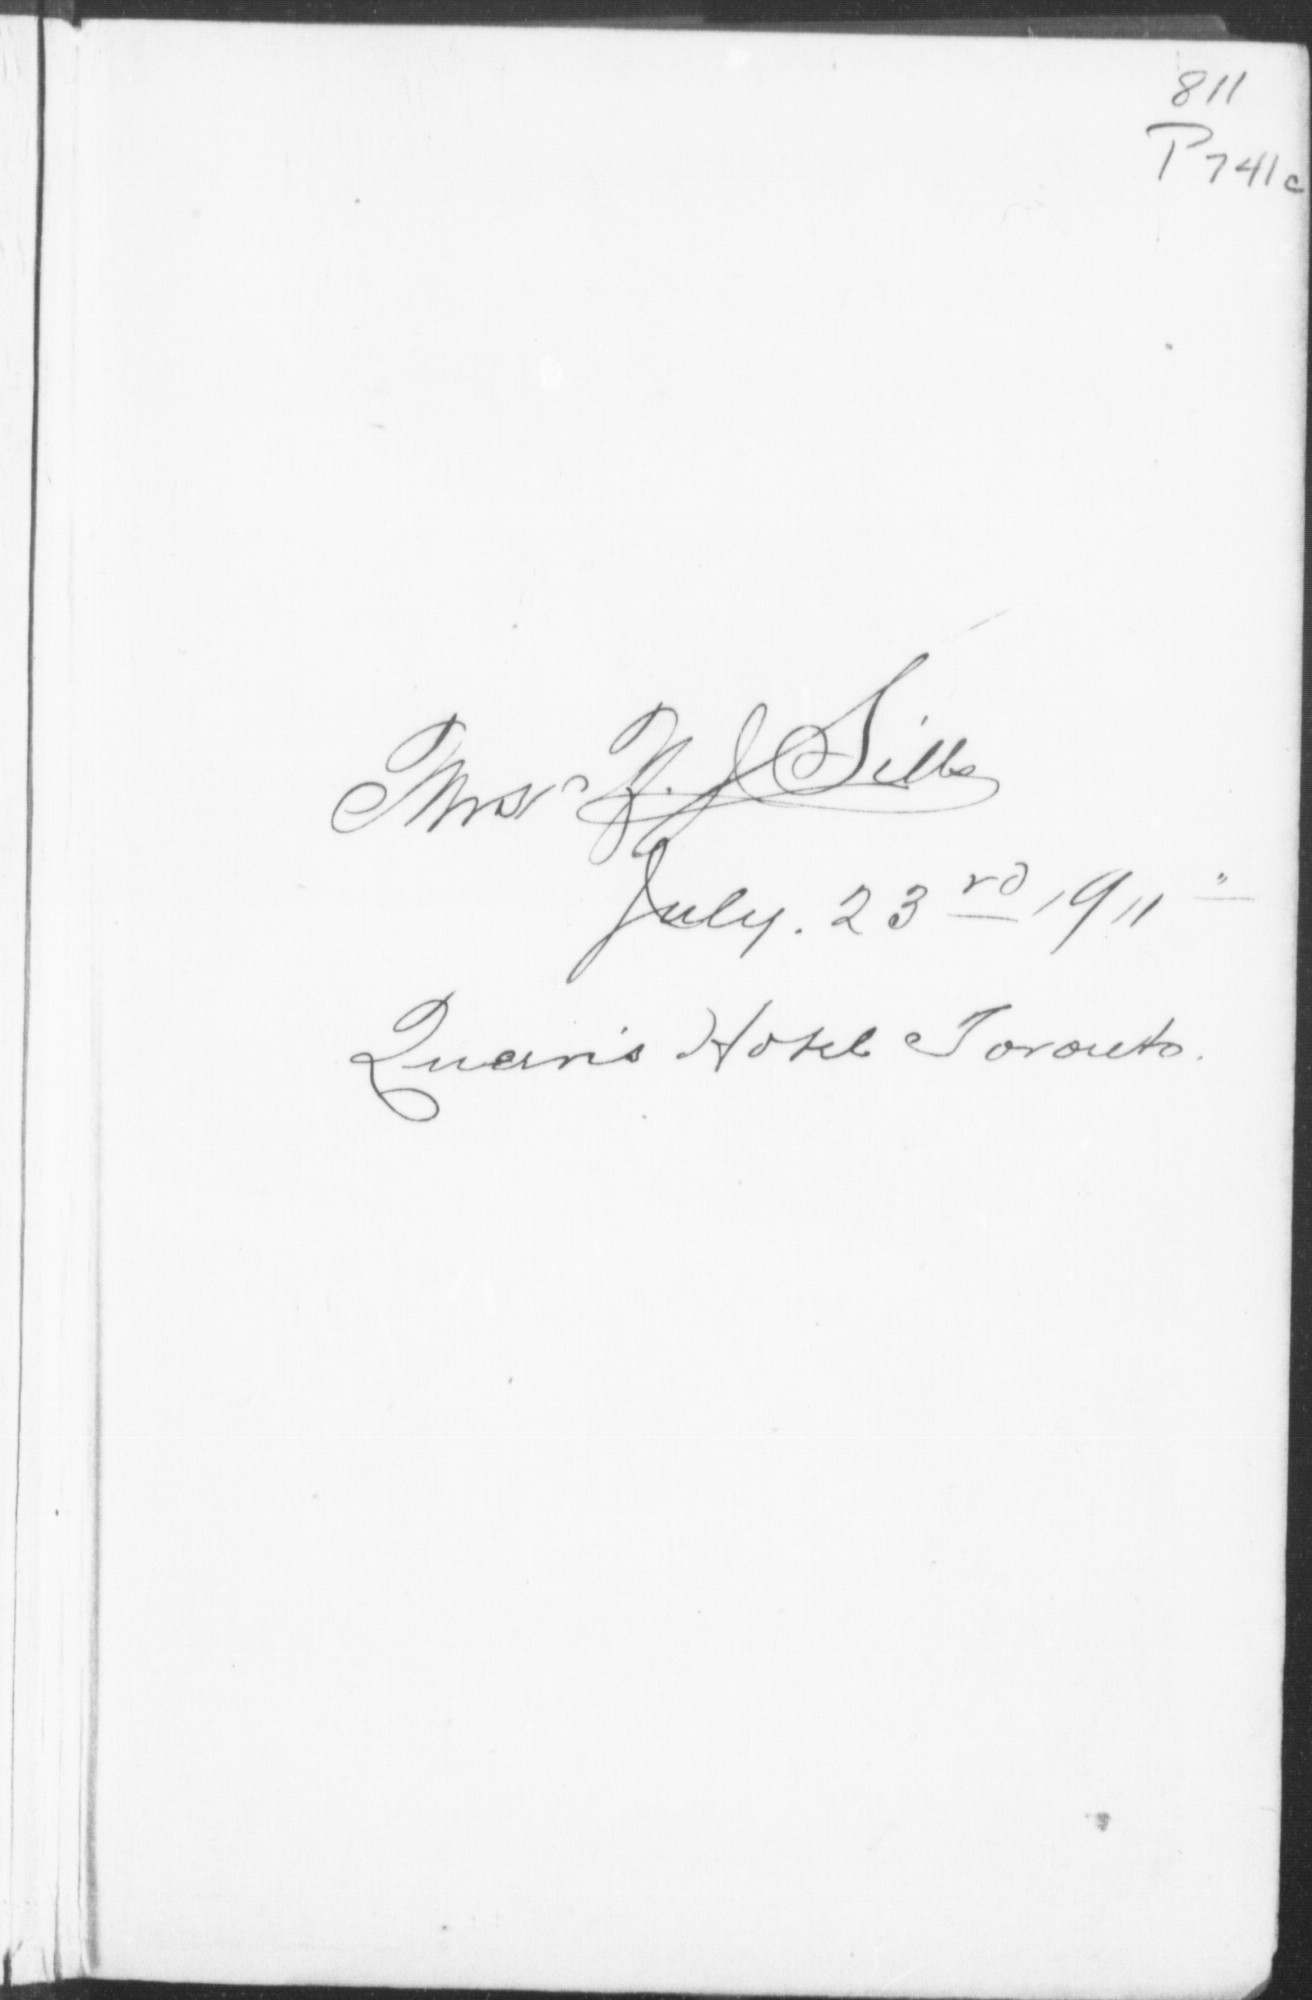 811
P741c
Mrs J Sills
July. 23rd 1911"
Queen's Hotel Toronto.